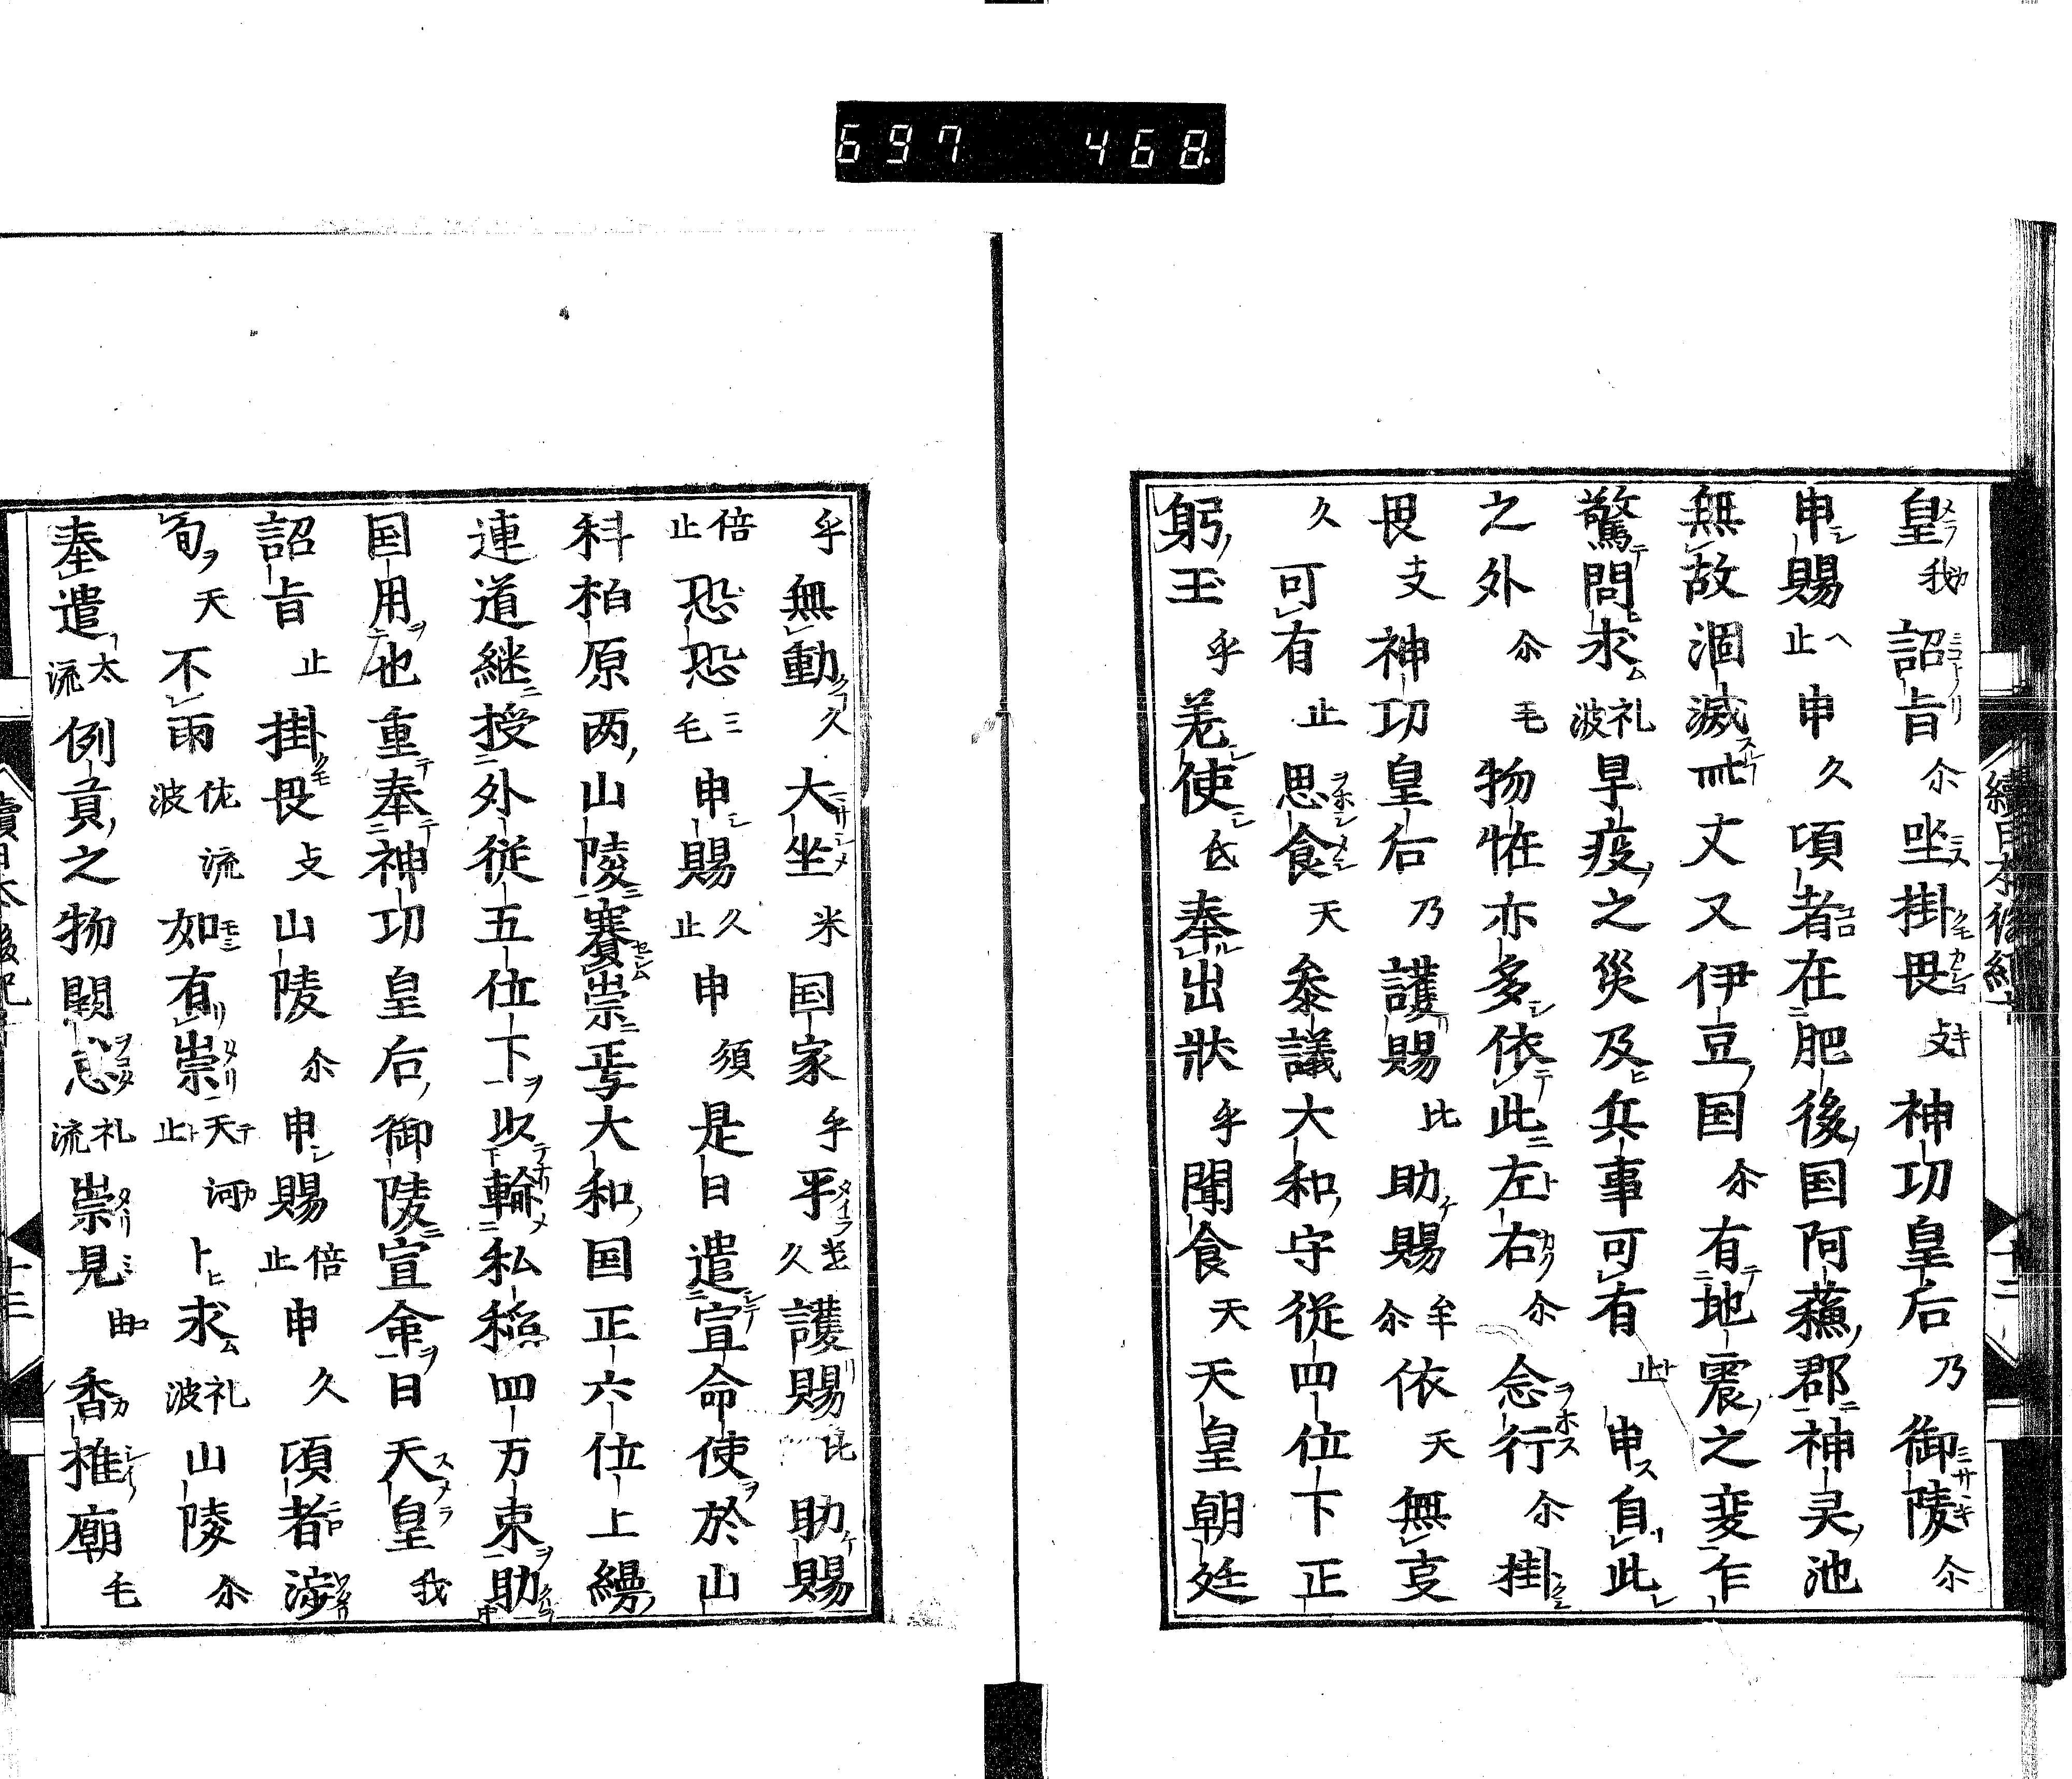 697 468.
續日本後紀十 十二
皇我詔旨尒坐掛畏攴神功皇后乃御陵尒
申賜止申久頃者在肥後国阿蘇郡神灵池
無故涸滅卌丈又伊豆国尒有地震之変乍
驚問求礼波旱疫之災及兵事可有止申自此
之外尒毛物恠亦多依此左右尒念行尒掛
畏支神功皇后乃護賜比助賜牟尒依天無㕝
久可有止思食天叅議大和守従四位下正
躬王乎差使氐奉出狀乎聞食天天皇朝廷
乎無動久大坐米国家乎平久護賜比助賜
倍止恐恐毛申賜久止申須是日遣宣命使於山
科柏原两山陵賽崇正与大和国正六位上縵
連道継授外従五位下以輸私稻四万束助
国用也重奉神功皇后御陵宣命曰天皇我
詔旨止掛畏攴山陵尒申賜倍止申久頃者渉
旬天不雨佐流波如有崇天止訶卜求礼波山陵尒
奉遣太流例貢之物闕怠礼流崇見由香椎廟毛
續日本後紀 十三